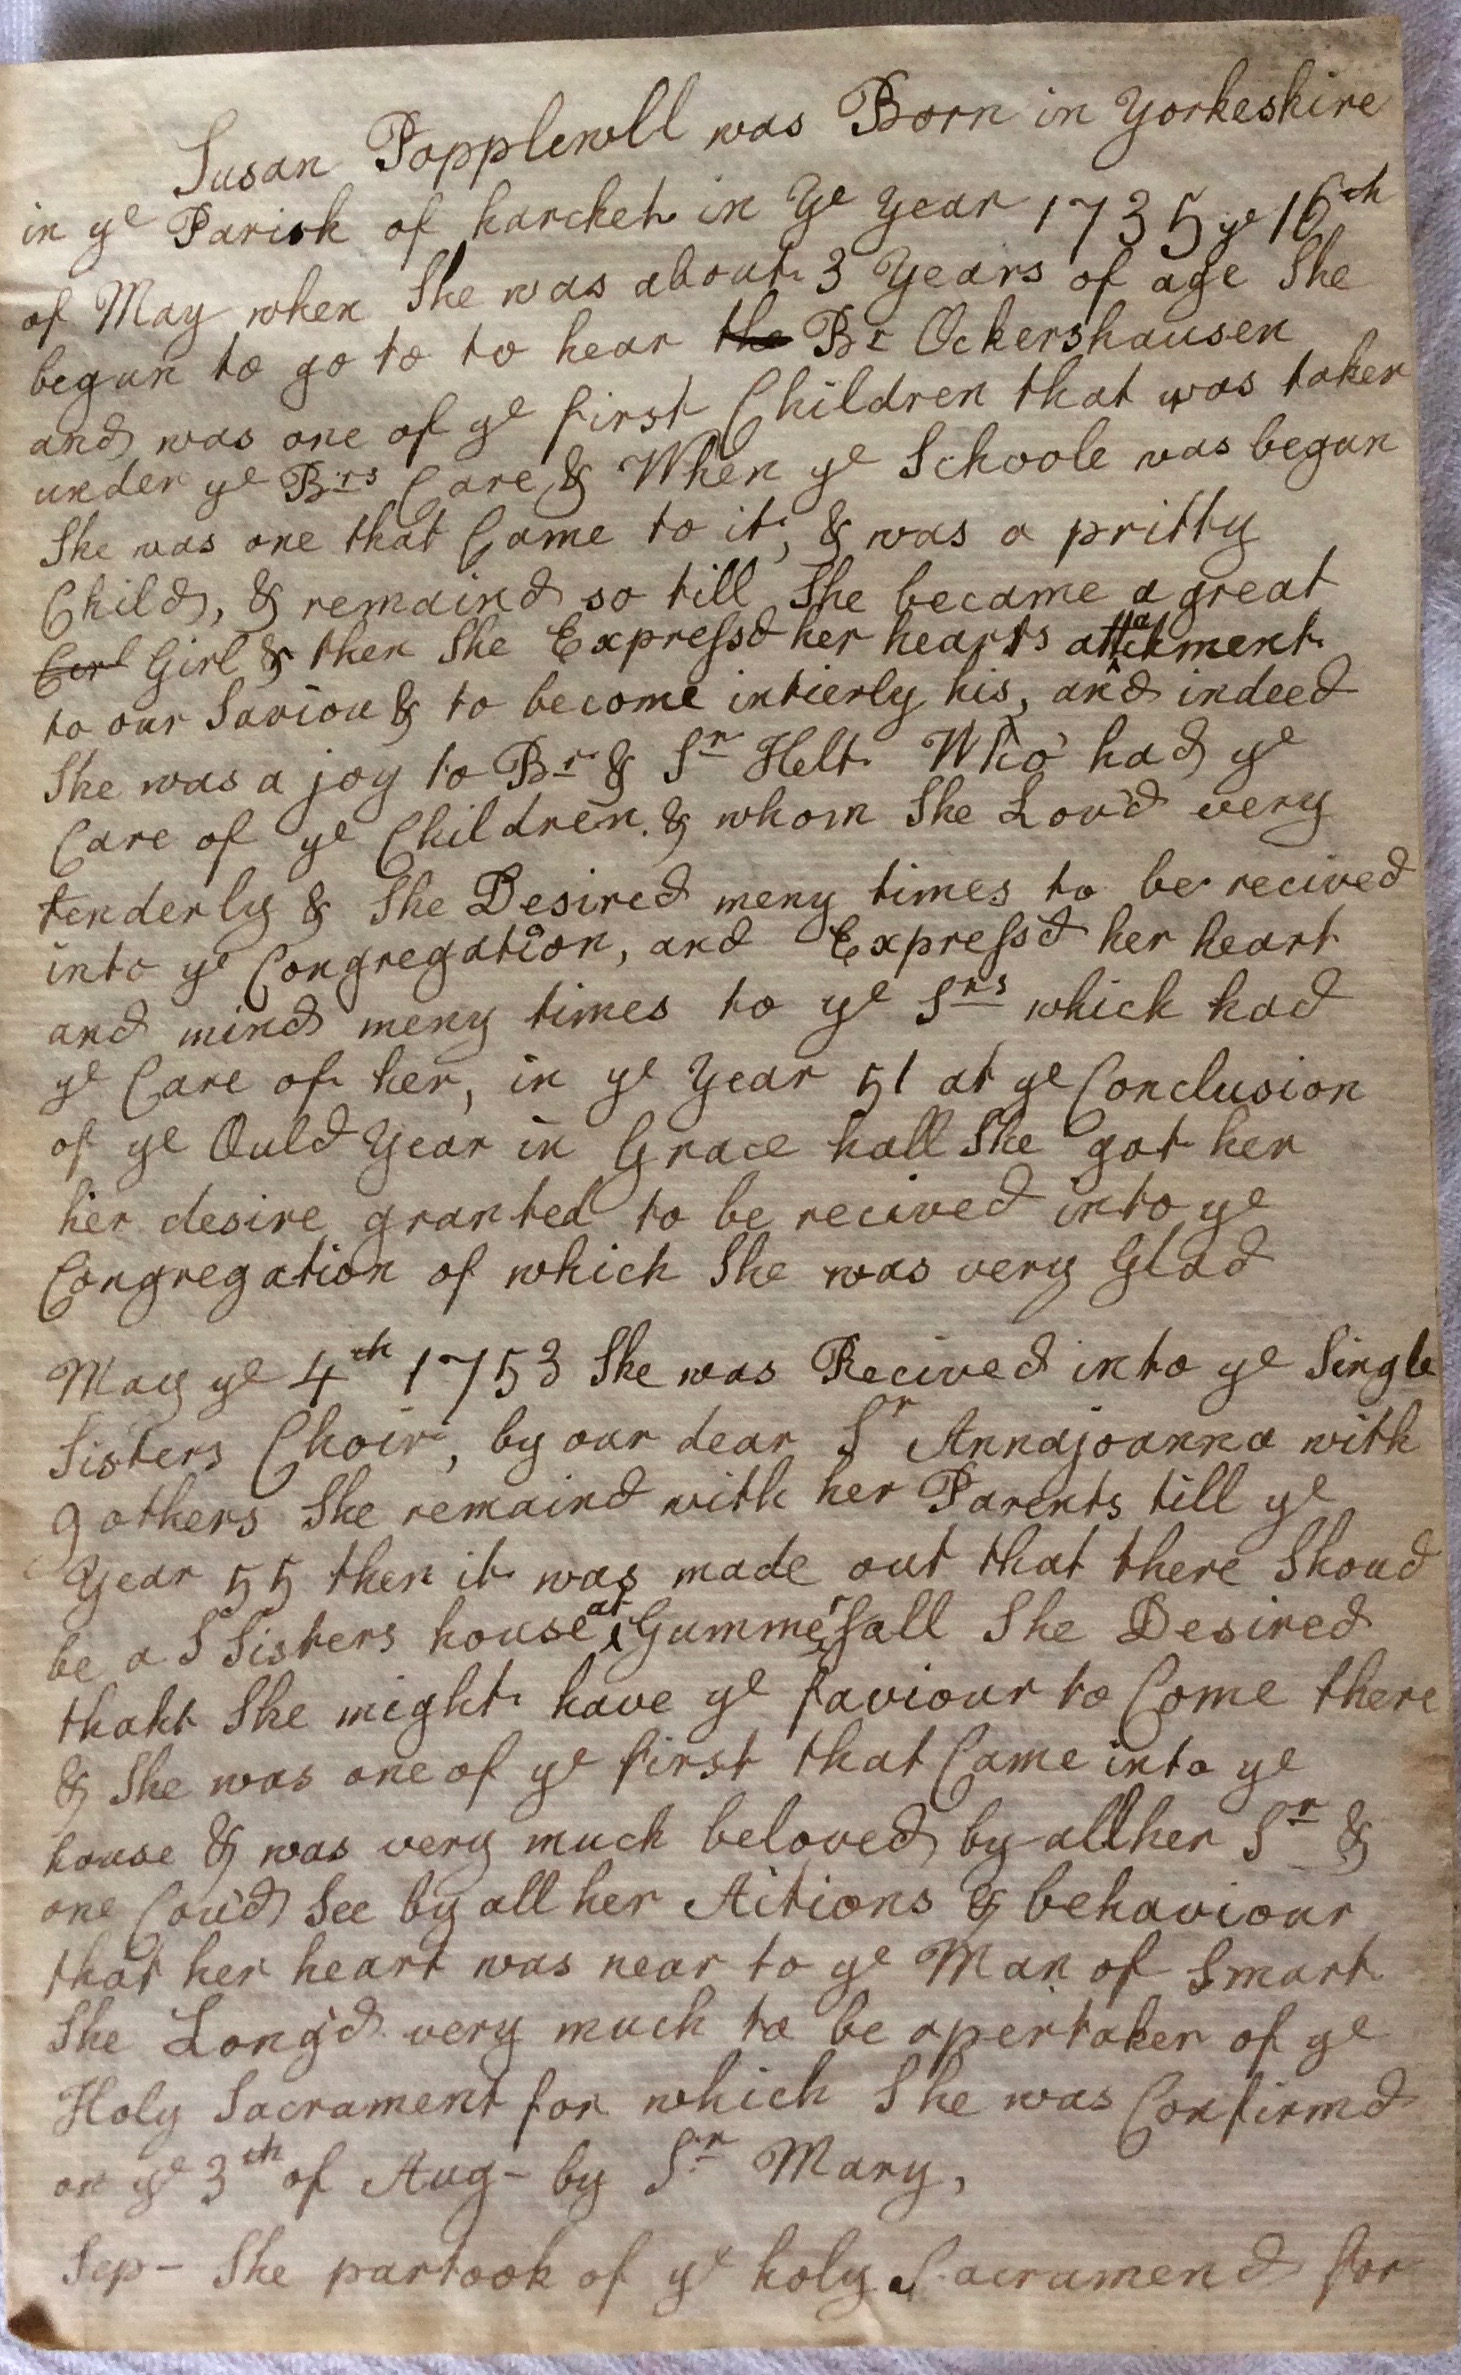 Susan Popplewll was Born in Yorkeshire
in ye Parish of harchet in Ye Year 1735 ye 16th
of May when She was about 3 Years of age She
begun to go to to hear the Br Ockershausen
and was one of ye first Children that was taken
under ye Brs Care & When ye Schoole was began
She was one that Came to it; & was a pritty
Child, & remaind so till She became a great
Gerl Girl & then She Expressd her hearts attachment
to our Saviou & to become intierly his, and indeed
She was a joy to Br & Sr Helt Who had ye
Care of ye Children. & whom She Lov'd very
tenderly & She Desired meny times to be recived
into ye Congregation, and Express'd her heart
and mind meny times to ye Srs which had
ye Care of her, in ye Year 51 at ye Conclusion
of ye Ould Year in Grace hall She got her
her desire granted to be recived into ye
Congregation of which She was very Glad
May ye 4th 1753 She was Recived into ye Single
Sisters Choir, by our dear Sr Annajoanna with
9 others She remaind with her Parents till ye
Year 55 then it was made out that there Shoud
be a S Sisters house at Gummersall She Desired
thaht She might have ye faviour to Come there
& She was one of ye first that Came into ye
house & was very much beloved by all her Sr &
one Cou'd See by all her Actions & behaviour
that her heart was near to ye Man of Smart
She Long'd very much to be apertaker of ye
Holy Sacrament for which She was Confirmd
on ye 3th of Aug- by Sr Mary,
Sep- She partook of ye holy Sacramend for